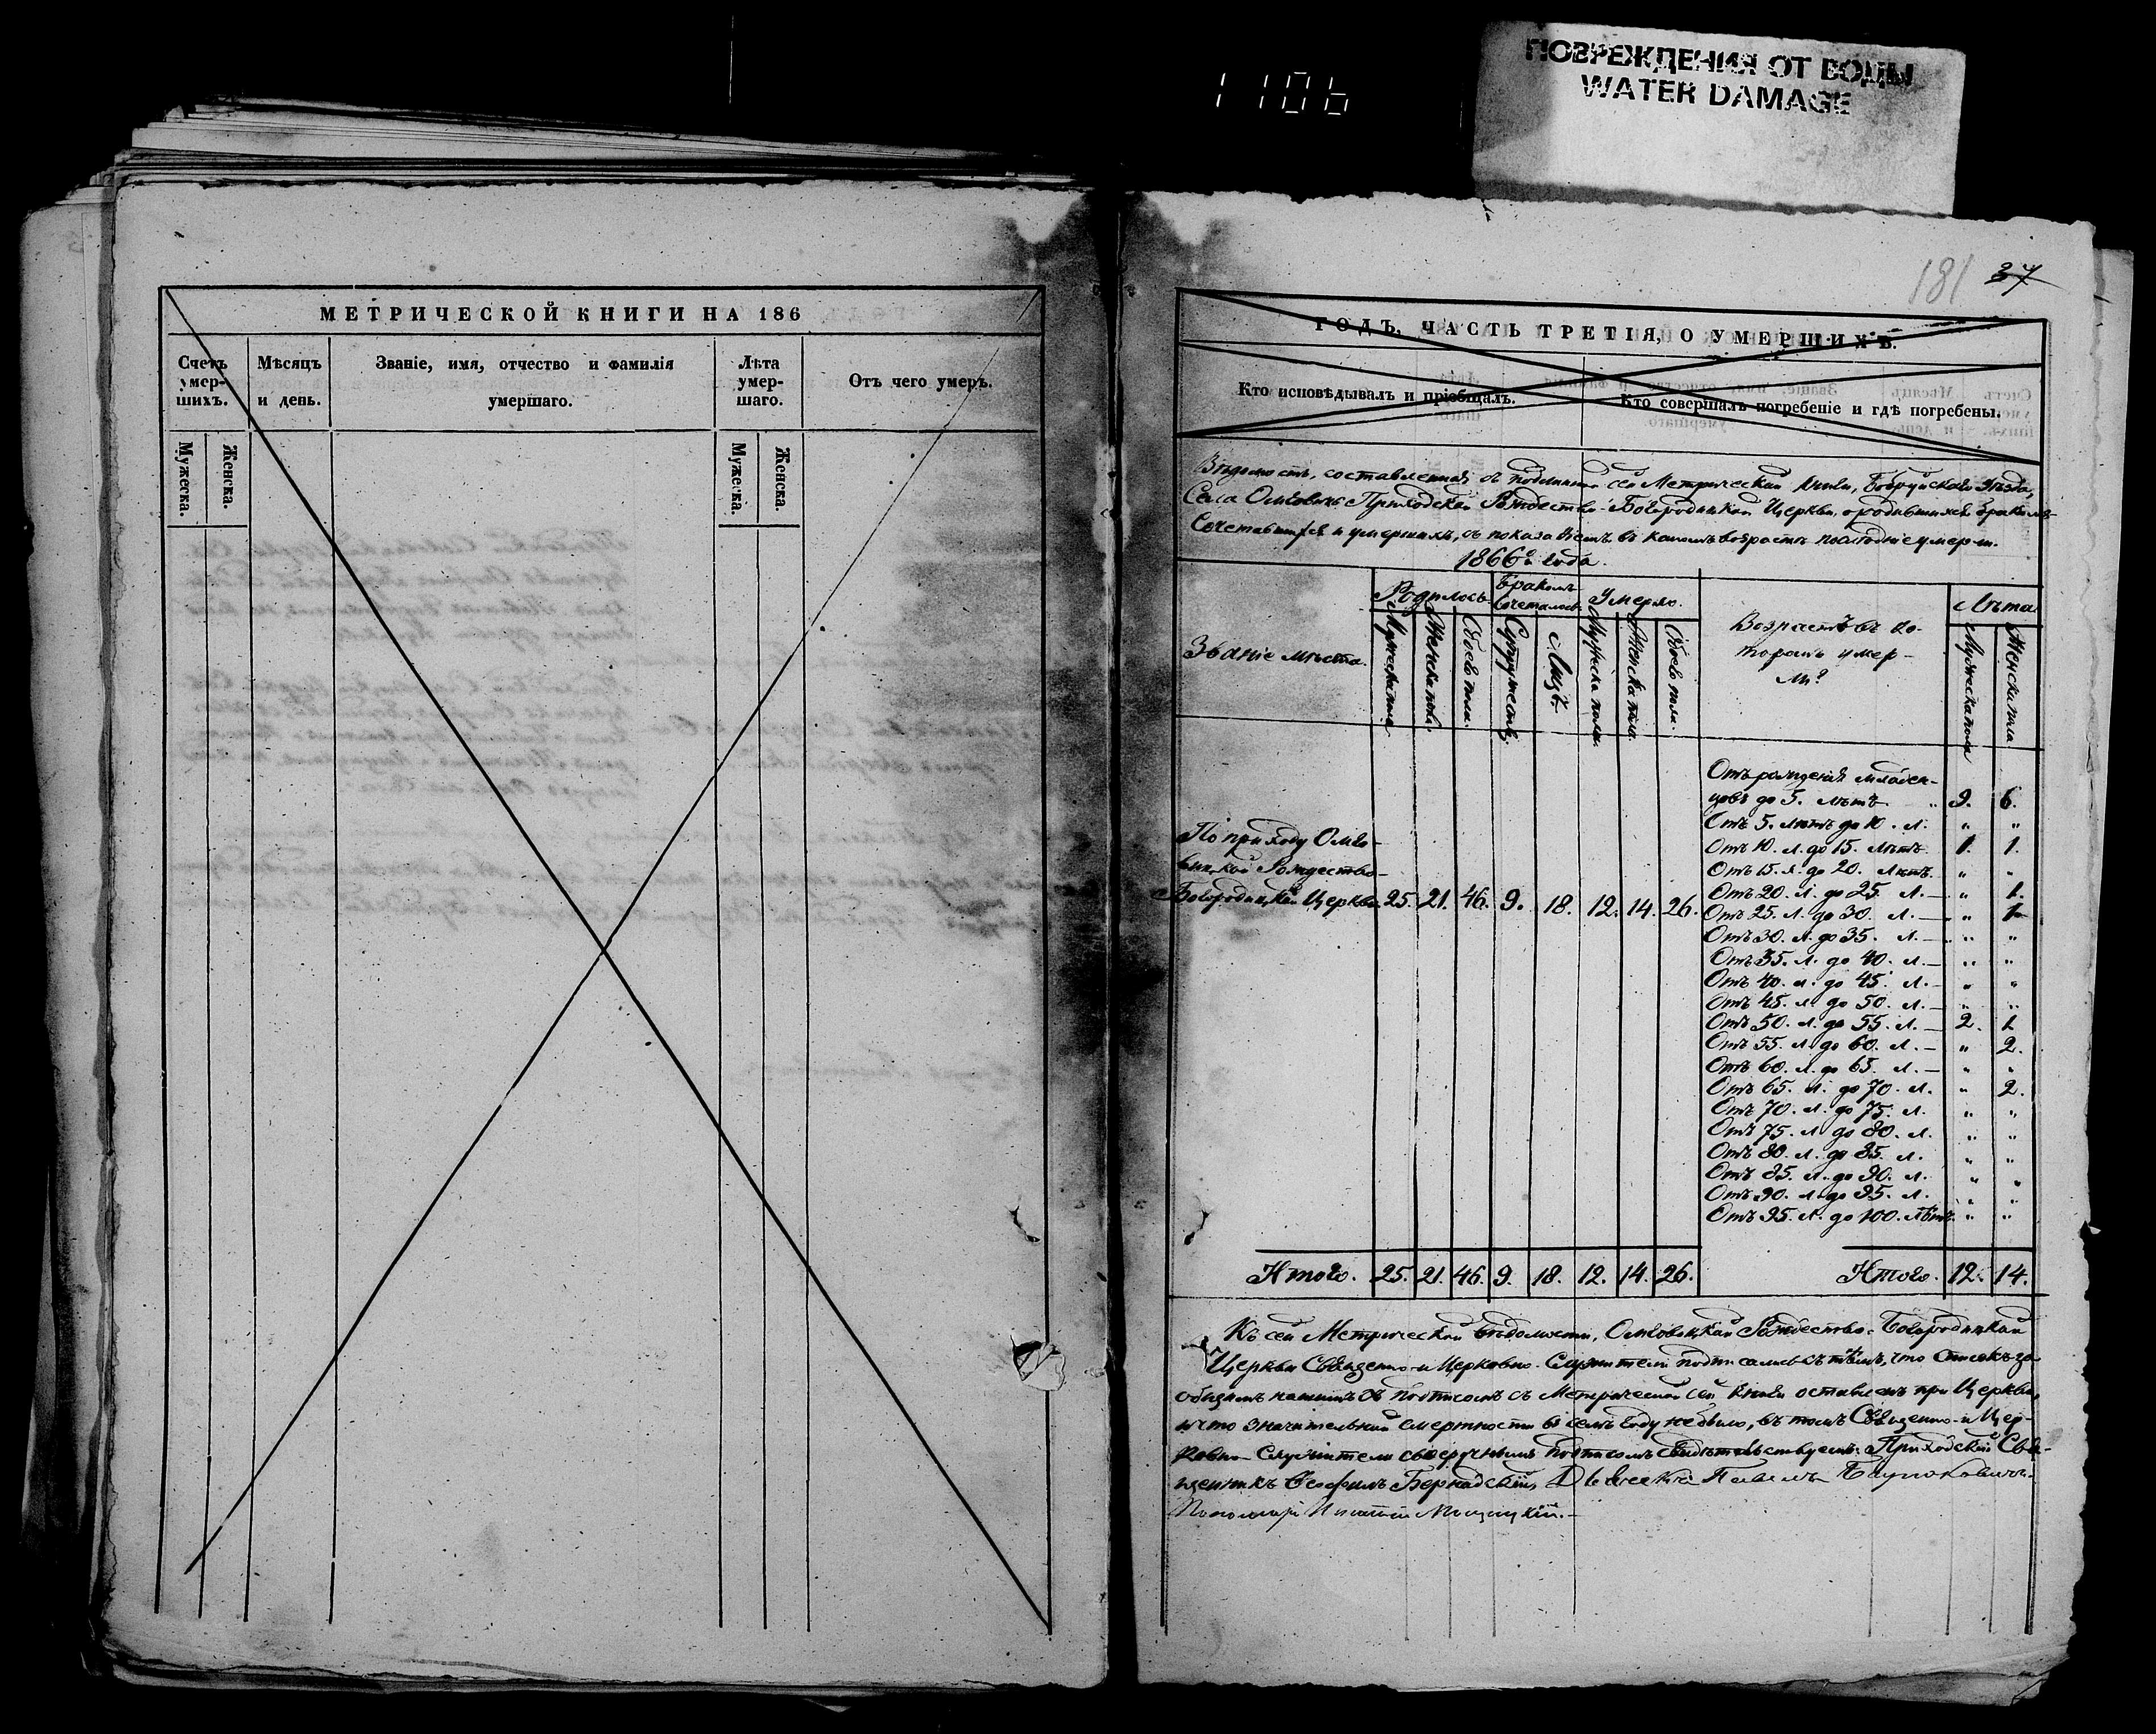 ПОВРЕЖДЕНИЯ ОТ ВОДЫ
WATER DAMAGE
1106
181 37
МЕТРИЧЕСКОЙ КНИГИ НА 186
Счетъ умер- шихъ.
Мѣсяцъ и день.
Званіе, имя, отчество и фамилія умершаго.
Лѣта умер- шаго.
Отъ чего умеръ.
Мужеска.
Женска.
Мужеска.
Женска.
ГОДЪ, ЧАСТЬ ТРЕТІЯ, О УМЕРШИХЪ.
Кто исповѣдывалъ и пріобщалъ.
Кто совершалъ погребеніе и гдѣ погребены.
Вѣдомость, составленная съ подлинной сей Метрической книги, Бобруйскаго уѣзда,
Села Приходской Рождество-Богородицкой Церкви, о родившихся, бракомъ
сочетавшихся и умершихъ, съ показаніемъ въ какомъ возрастѣ умерли.
1866го года.
Званіе мѣста.
Родилось
Бракомъ сочеталось
Умерло.
Возрастъ въ ко-
торомъ умер-
ли?
Лѣта
Мужеска пола
Женска пола
Обоего пола
Супружествъ
Лицъ
Мужеска пола
Женска пола
Обоего пола
Мужеска пола
Женска пола
Отъ рожденія младен-
цовъ до 5. лѣтъ. 9. 6.
Отъ 5. лѣтъ до 10. л. " "
Отъ 10. л. до 15. лѣтъ. 1. 1.
Отъ 15. л. до 20. лѣтъ. " "
Отъ 20. л. до 25. л. — " 1.
Отъ 25. л. до 30. л. — " 1.
Отъ 30. л. до 35. л. — " "
Отъ 35. л. до 40. л. — " "
Отъ 40. л. до 45. л. — " "
Отъ 45. л. до 50. л. — " "
Отъ 50. л. до 55. л. — 2. 1.
Отъ 55. л. до 60. л. — " 2.
Отъ 60. л. до 65. л. — " "
Отъ 65. л. до 70. л. " 2.
Отъ 70. л. до 75. л. " "
Отъ 75. л. до 80. л. " "
Отъ 80. л. до 85. л. " "
Отъ 85. л. до 90. л. " "
Отъ 90. л. до 95. л. " "
Отъ 95. л. до 100. лѣтъ. " "
По приходу
Рождество-
Богородицкой Церкви 25. 21. 46. 9. 18. 12. 14. 26.
Итого. 25. 21. 46. 9. 18. 12. 14. 26.
Итого. 12. 14.
Къ сей Метрической вѣдомости, Рождество-Богородицкой
Церкви Священно-и Церковно-Служители подписались съ тѣмъ, что списокъ за
общимъ нашимъ подписомъ съ Метрической сей книги оставленъ при Церкви,
и что значительной смертности въ семъ году не было, въ томъ Священно-и Цер-
ковно-Служители своеручнымъ подписомъ свидѣтельствуемъ: Приходскій Свя-
щенникъ Ѳеофилъ Павелъ
Пономарь